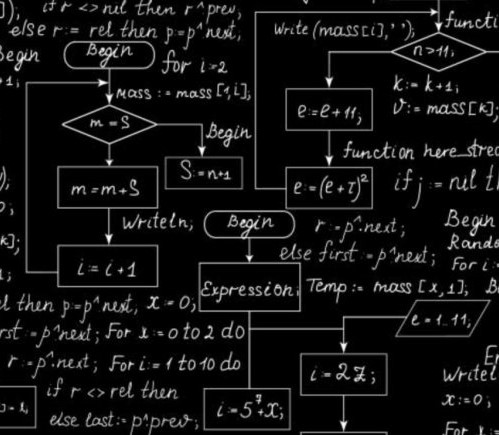 if r <> nel then r^prev,
else r:= rel then p:=p^next;
Begin
Begin
for i:=2
mass := mass[1,i];
m = S
Begin
S:=n+1
m=m+S
Writeln;
i:= i+1
Write(mass[i],' ');
n>11;
k:= k+1;
v:= mass[k];
e:=e+11;
function
e:=(e+τ)²
if j := nel
Begin
r:=p^.next;
else first:=p^next;
Begin
For i:=
Expression;
Temp:= mass[x,1];
e=1..11;
then p:=p^next, x:=0;
:=p^next; For x:=0 to 2 do
r:=p^.next; For i:=1 to 10 do
if r <> rel then
else last:=p^prev;
i:=2Z;
i:=5⁷+x;
x:=0;
For